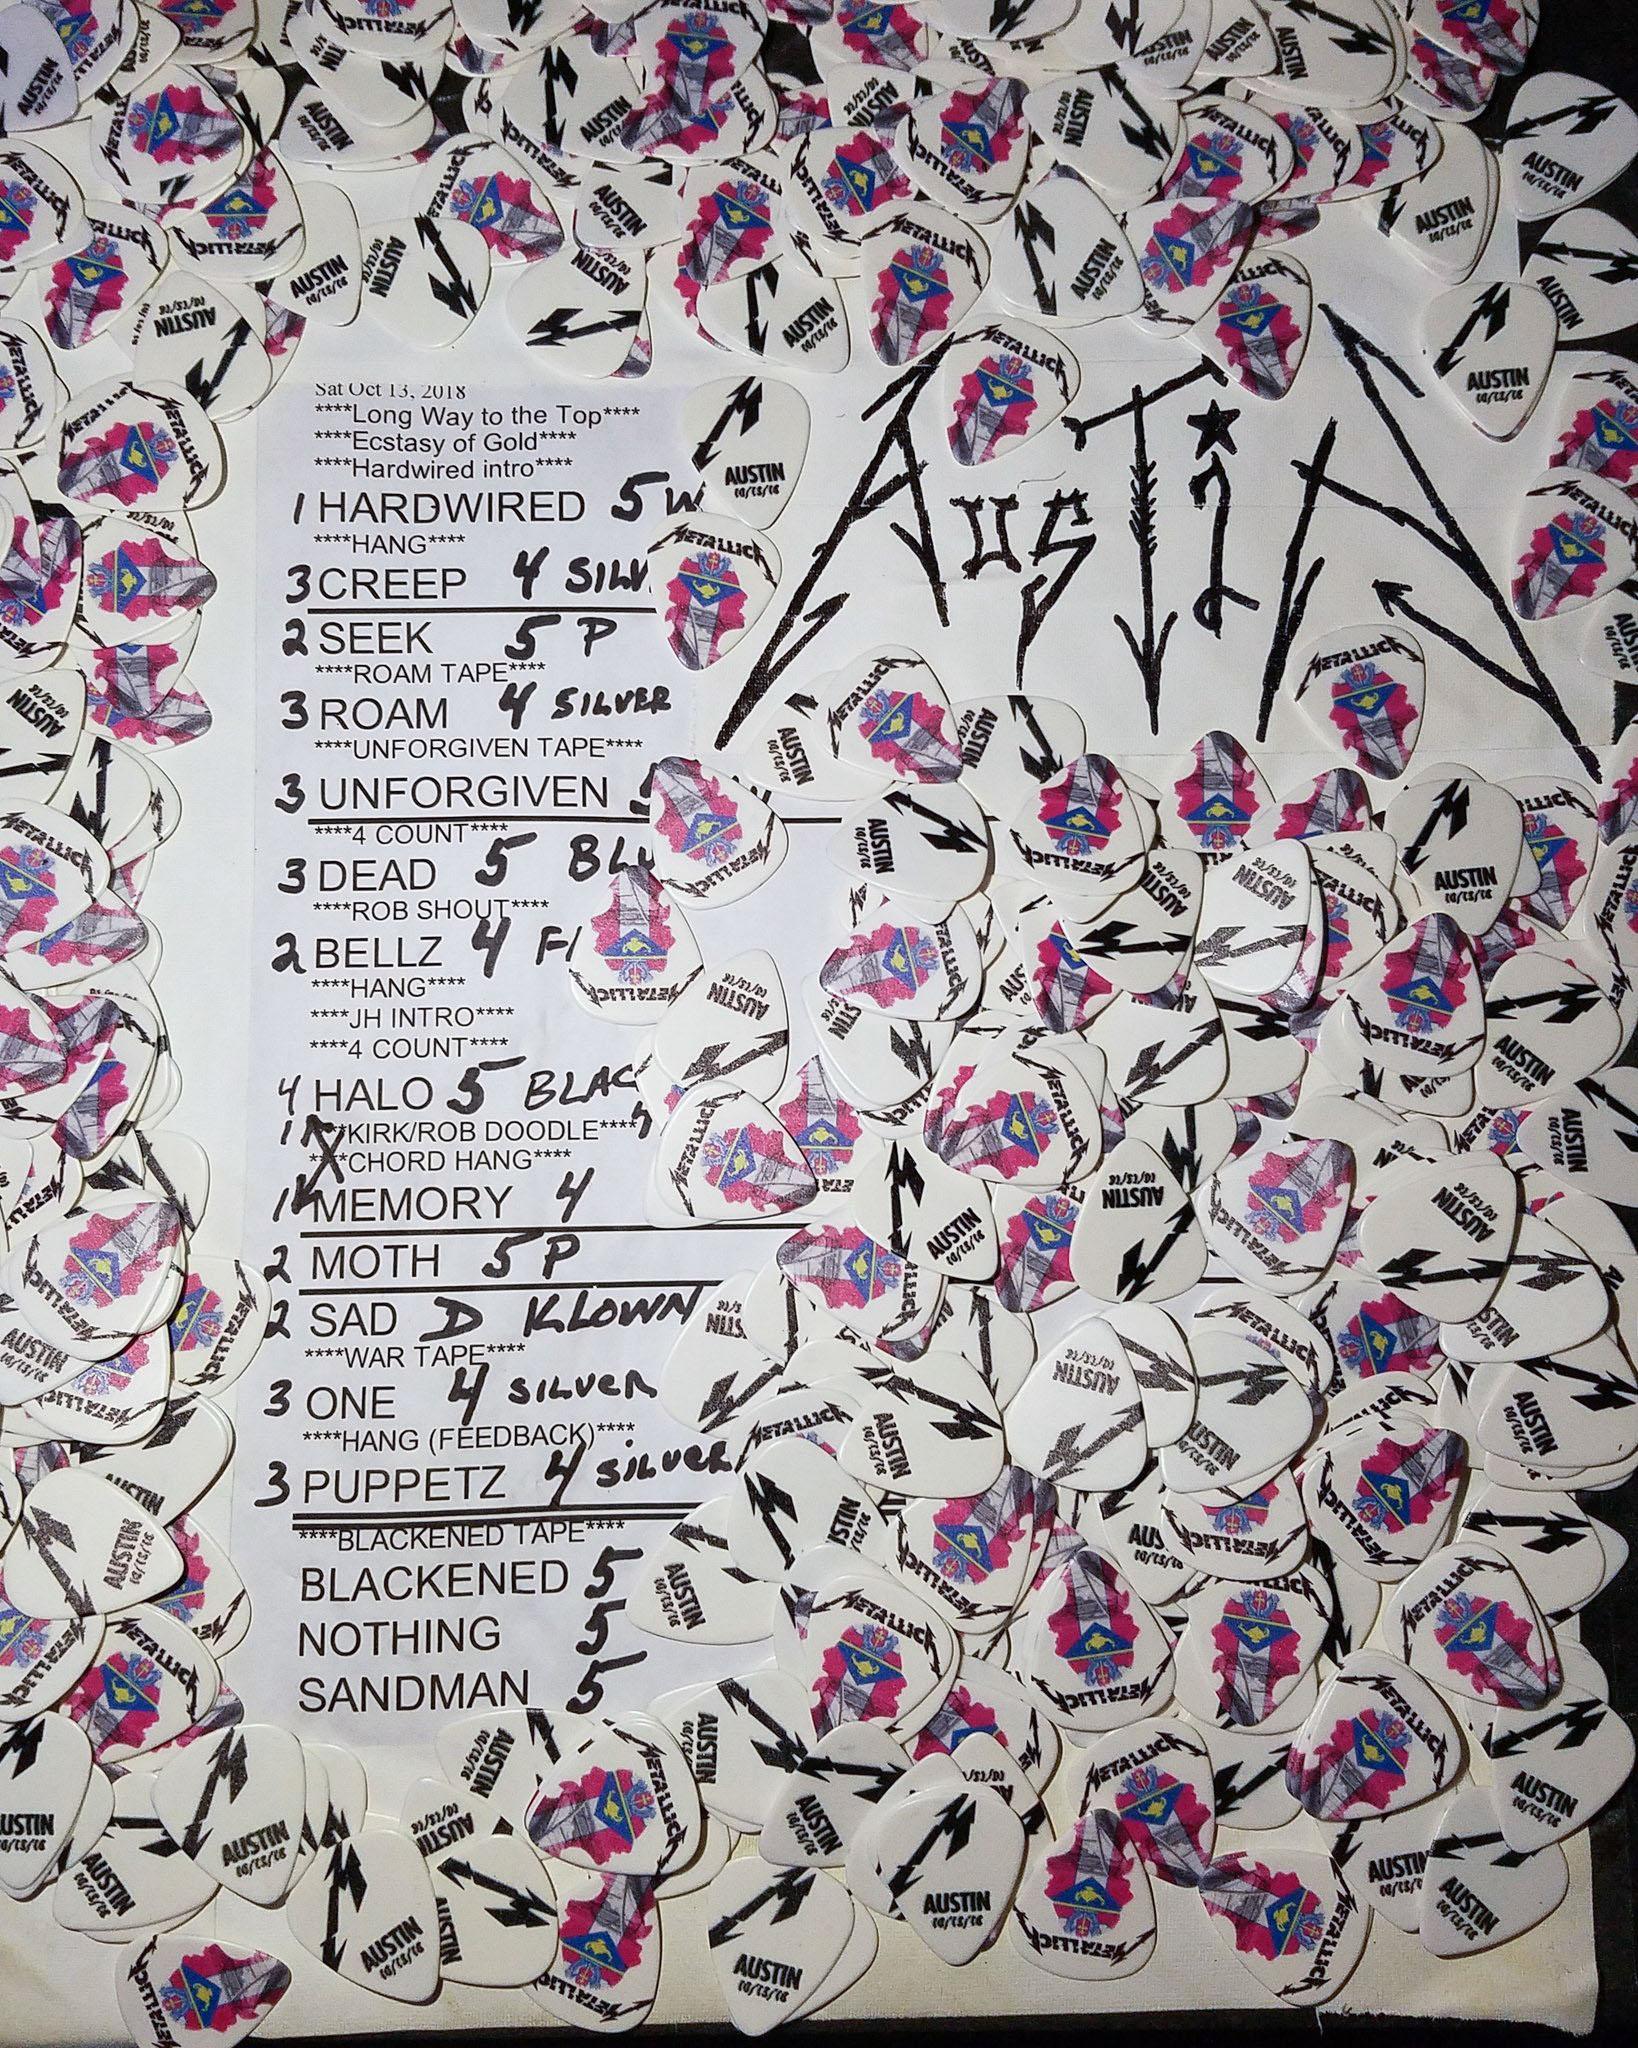 Sat Oct 13, 2018
****Long Way to the Top****
****Ecstasy of Gold****
****Hardwired intro****
1 HARDWIRED 5 W
****HANG****
3 CREEP 4 SILV
2 SEEK 5 P
****ROAM TAPE****
3 ROAM 4 SILVER
****UNFORGIVEN TAPE****
3 UNFORGIVEN 5
****4 COUNT****
3 DEAD 5 BLU
****ROB SHOUT****
2 BELLZ 4
****HANG****
****JH INTRO****
****4 COUNT****
4 HALO 5 BLAC
****KIRK/ROB DOODLE****
****CHORD HANG****
MEMORY 4
2 MOTH 5 P
2 SAD D KLOWN
****WAR TAPE****
3 ONE 4 SILVER
****HANG (FEEDBACK)****
3 PUPPETZ 4 SILVER
****BLACKENED TAPE****
BLACKENED 5
NOTHING 5
SANDMAN 5
AUSTIN
METALLICA
AUSTIN
10/13/18